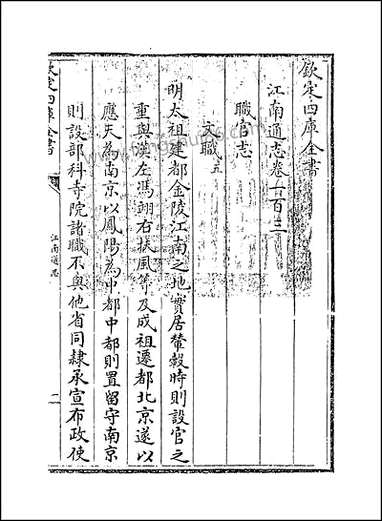 欽定四庫全書
江南通志卷一百三
職官志
文職五
明太祖建都金陵江南之地實居輦轂時則設官之
重與漢左馮翊右扶風竿及成祖遷都北京遂以
應天為南京以鳳陽為中都中都則置留守南京
則設部科寺院諸職不與他省同隷承宣布政使
欽定四庫全書
江南通志
一